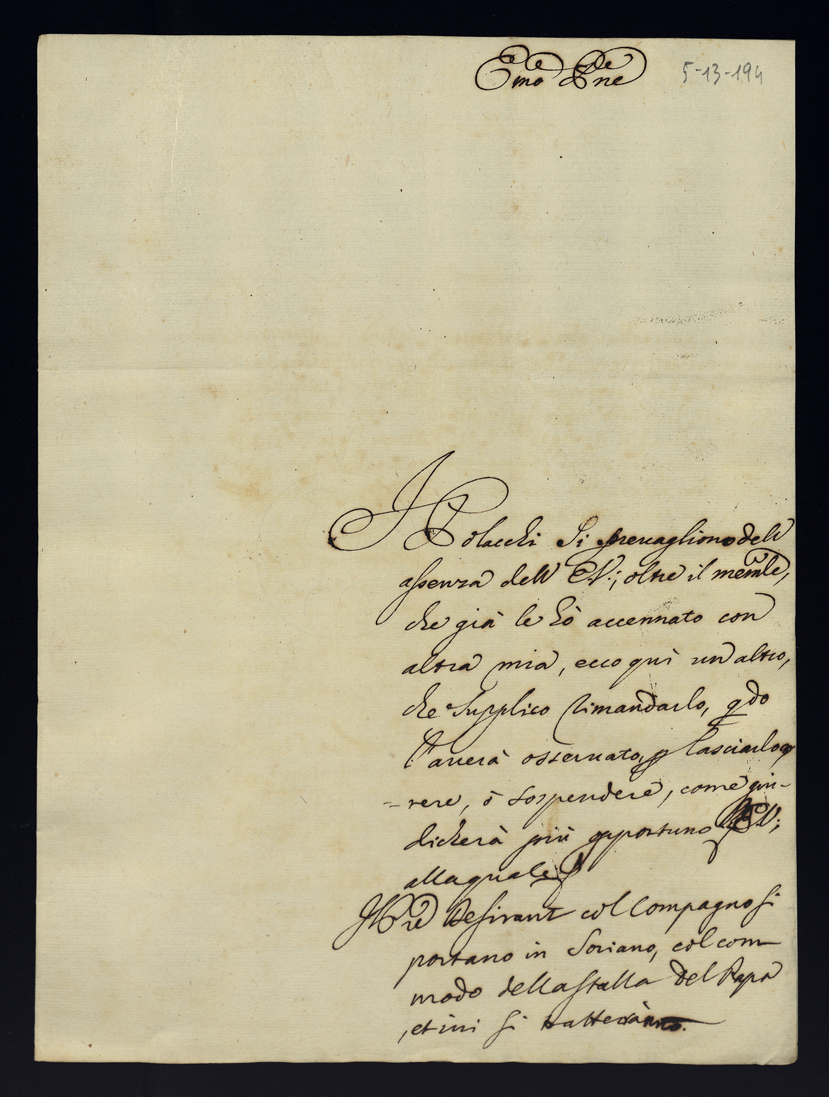 Emo Pne
5-13-194
I Polacchi si prevagliono dell
assenza dell E.V.; oltre il memle,
che già le hò accennato con
altra mia, ecco quì un altro,
che supplico rimandarlo, qdo
l'averà osservato, p lasciarlo
rere, ò sospendere, come giu-
dicherà più opportuno V:
alla quale
Il Pre Desirant col Compagno si
portano in Soriano, col com
modo della stalla del Papa
, et ivi si tratterànno.